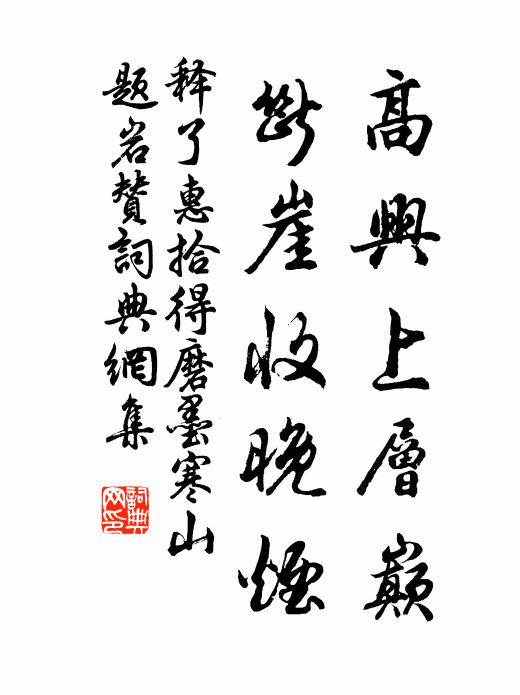 高興上層巔
斷崖收晚煙
释了惠拾得磨墨寒山
题岩赞詞典網集
詞典网印